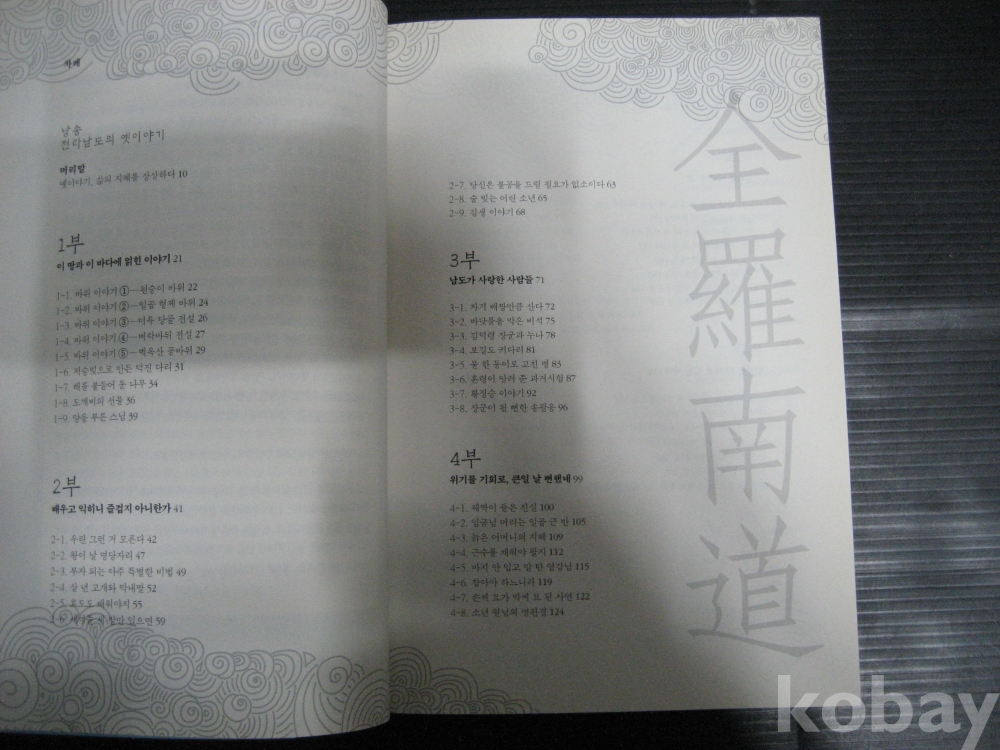 차례
낭송
전라남도의 옛이야기
머리말
옛이야기, 삶의 지혜를 상상하다 10
1부
이 땅과 이 바다에 얽힌 이야기 21
1-1. 바위 이야기 ①―원숭이 바위 22
1-2. 바위 이야기 ②―일곱 형제 바위 24
1-3. 바위 이야기 ③― 전설 26
1-4. 바위 이야기 ④―벼락바위 전설 27
1-5. 바위 이야기 ⑤―벽옥산 공바위 29
1-6. 저승빚으로 만든 덕진 다리 31
1-7. 해를 붙들어 둔 나무 34
1-8. 도깨비의 선물 36
1-9. 양을 푸른 스님 39
2부
배우고 익히니 즐겁지 아니한가 41
2-1. 우린 그런 거 모른다 42
2-2. 왕이 날 명당자리 47
2-3. 부자 되는 아주 특별한 비법 49
2-4. 삼 년 고개와 막내딸 52
2-5. 효도도 해야지 55
2-6. 있으면 59
2-7. 당신은 불공을 드릴 필요가 없소이다 63
2-8. 술 빚는 어린 소년 65
2-9. 김생 이야기 68
3부
남도가 사랑한 사람들 71
3-1. 자기 배짱만큼 산다 72
3-2. 바닷물을 막은 비석 75
3-3. 김덕령 장군과 누나 78
3-4. 보길도 키다리 81
3-5. 물 한 동이로 고친 병 83
3-6. 혼령이 알려 준 과거시험 87
3-7. 황정승 이야기 92
3-8. 장군이 될 뻔한 송팔응 96
4부
위기를 기회로, 큰일 날 뻔했네 99
4-1. 해박이 들은 진실 100
4-2. 임금님 머리는 일곱 근 반 105
4-3. 늙은 어머니의 지혜 109
4-4. 근수를 채워야 팔지 112
4-5. 바지 안 입고 말 탄 영감님 115
4-6. 참아야 하느니라 119
4-7. 손에 요가 박혀 요 된 사연 122
4-8. 소년 원님의 명판결 124
全羅南道
kobay